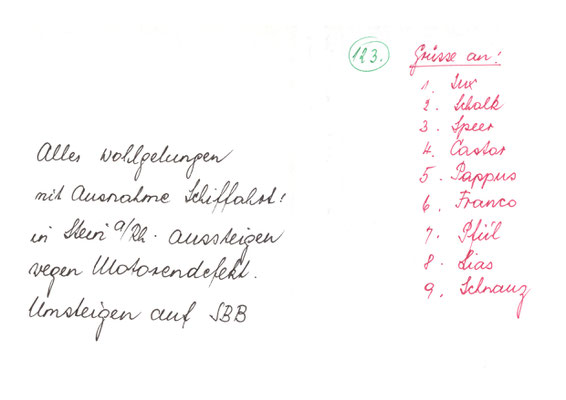 Alles wohlgelungen
mit Ausnahme Schiffahrt!
in Stein a/Rh. aussteigen
wegen Motorendefekt.
Umsteigen auf SBB
123.
Grüsse an:
1. Lux
2. Schalk
3. Speer
4. Castor
5. Pappus
6. Franco
7. Pfül
8. Lias
9. Schnauz